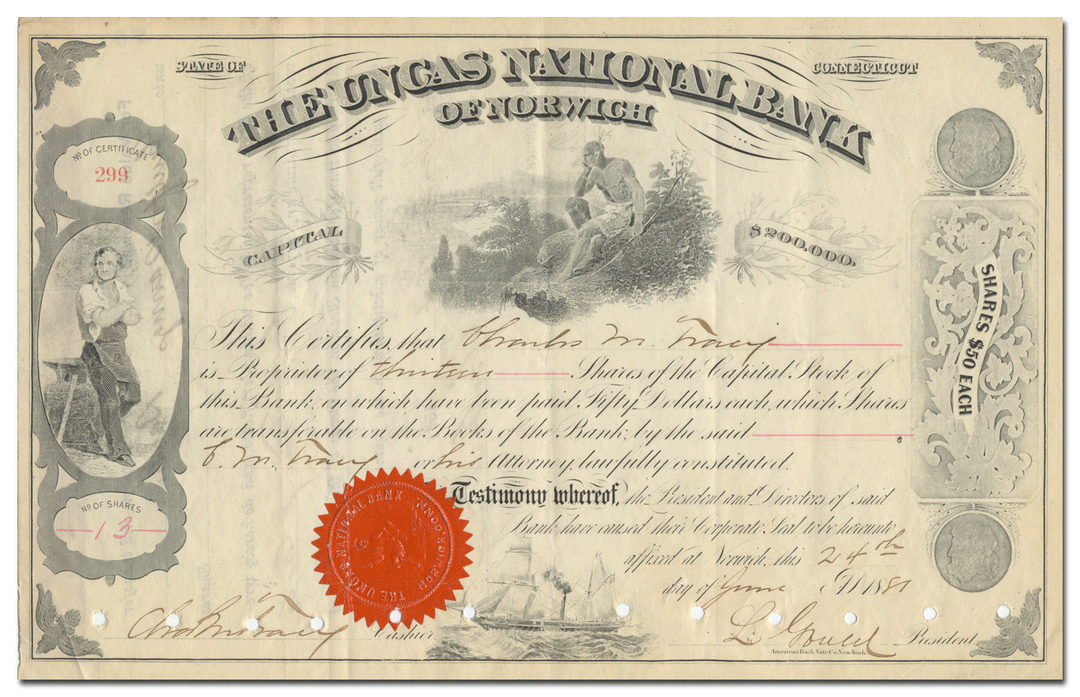 STATE OF
CONNECTICUT
THE UNCAS NATIONAL BANK
OF NORWICH
Nº OF CERTIFICATE
299
CAPITAL
$200,000.
SHARES $50 EACH
This Certifies, that Charles M. Tracy
is Proprietor of thirteen Shares of the Capital Stock of
this Bank, on which have been paid Fifty Dollars each, which Shares
are transferable on the Books of the Bank, by the said
C. M. Tracy or his Attorney, lawfully constituted.
Nº OF SHARES
13
Testimony whereof, the President and Directors of said
Bank have caused their Corporate Seal to be hereunto
affixed at Norwich, this 24th
day of June AD 1881
THE UNCAS NATIONAL BANK NORWICH, CONN.
Chas M Tracy Cashier
L. Gould President
American Bank Note Co. New York.